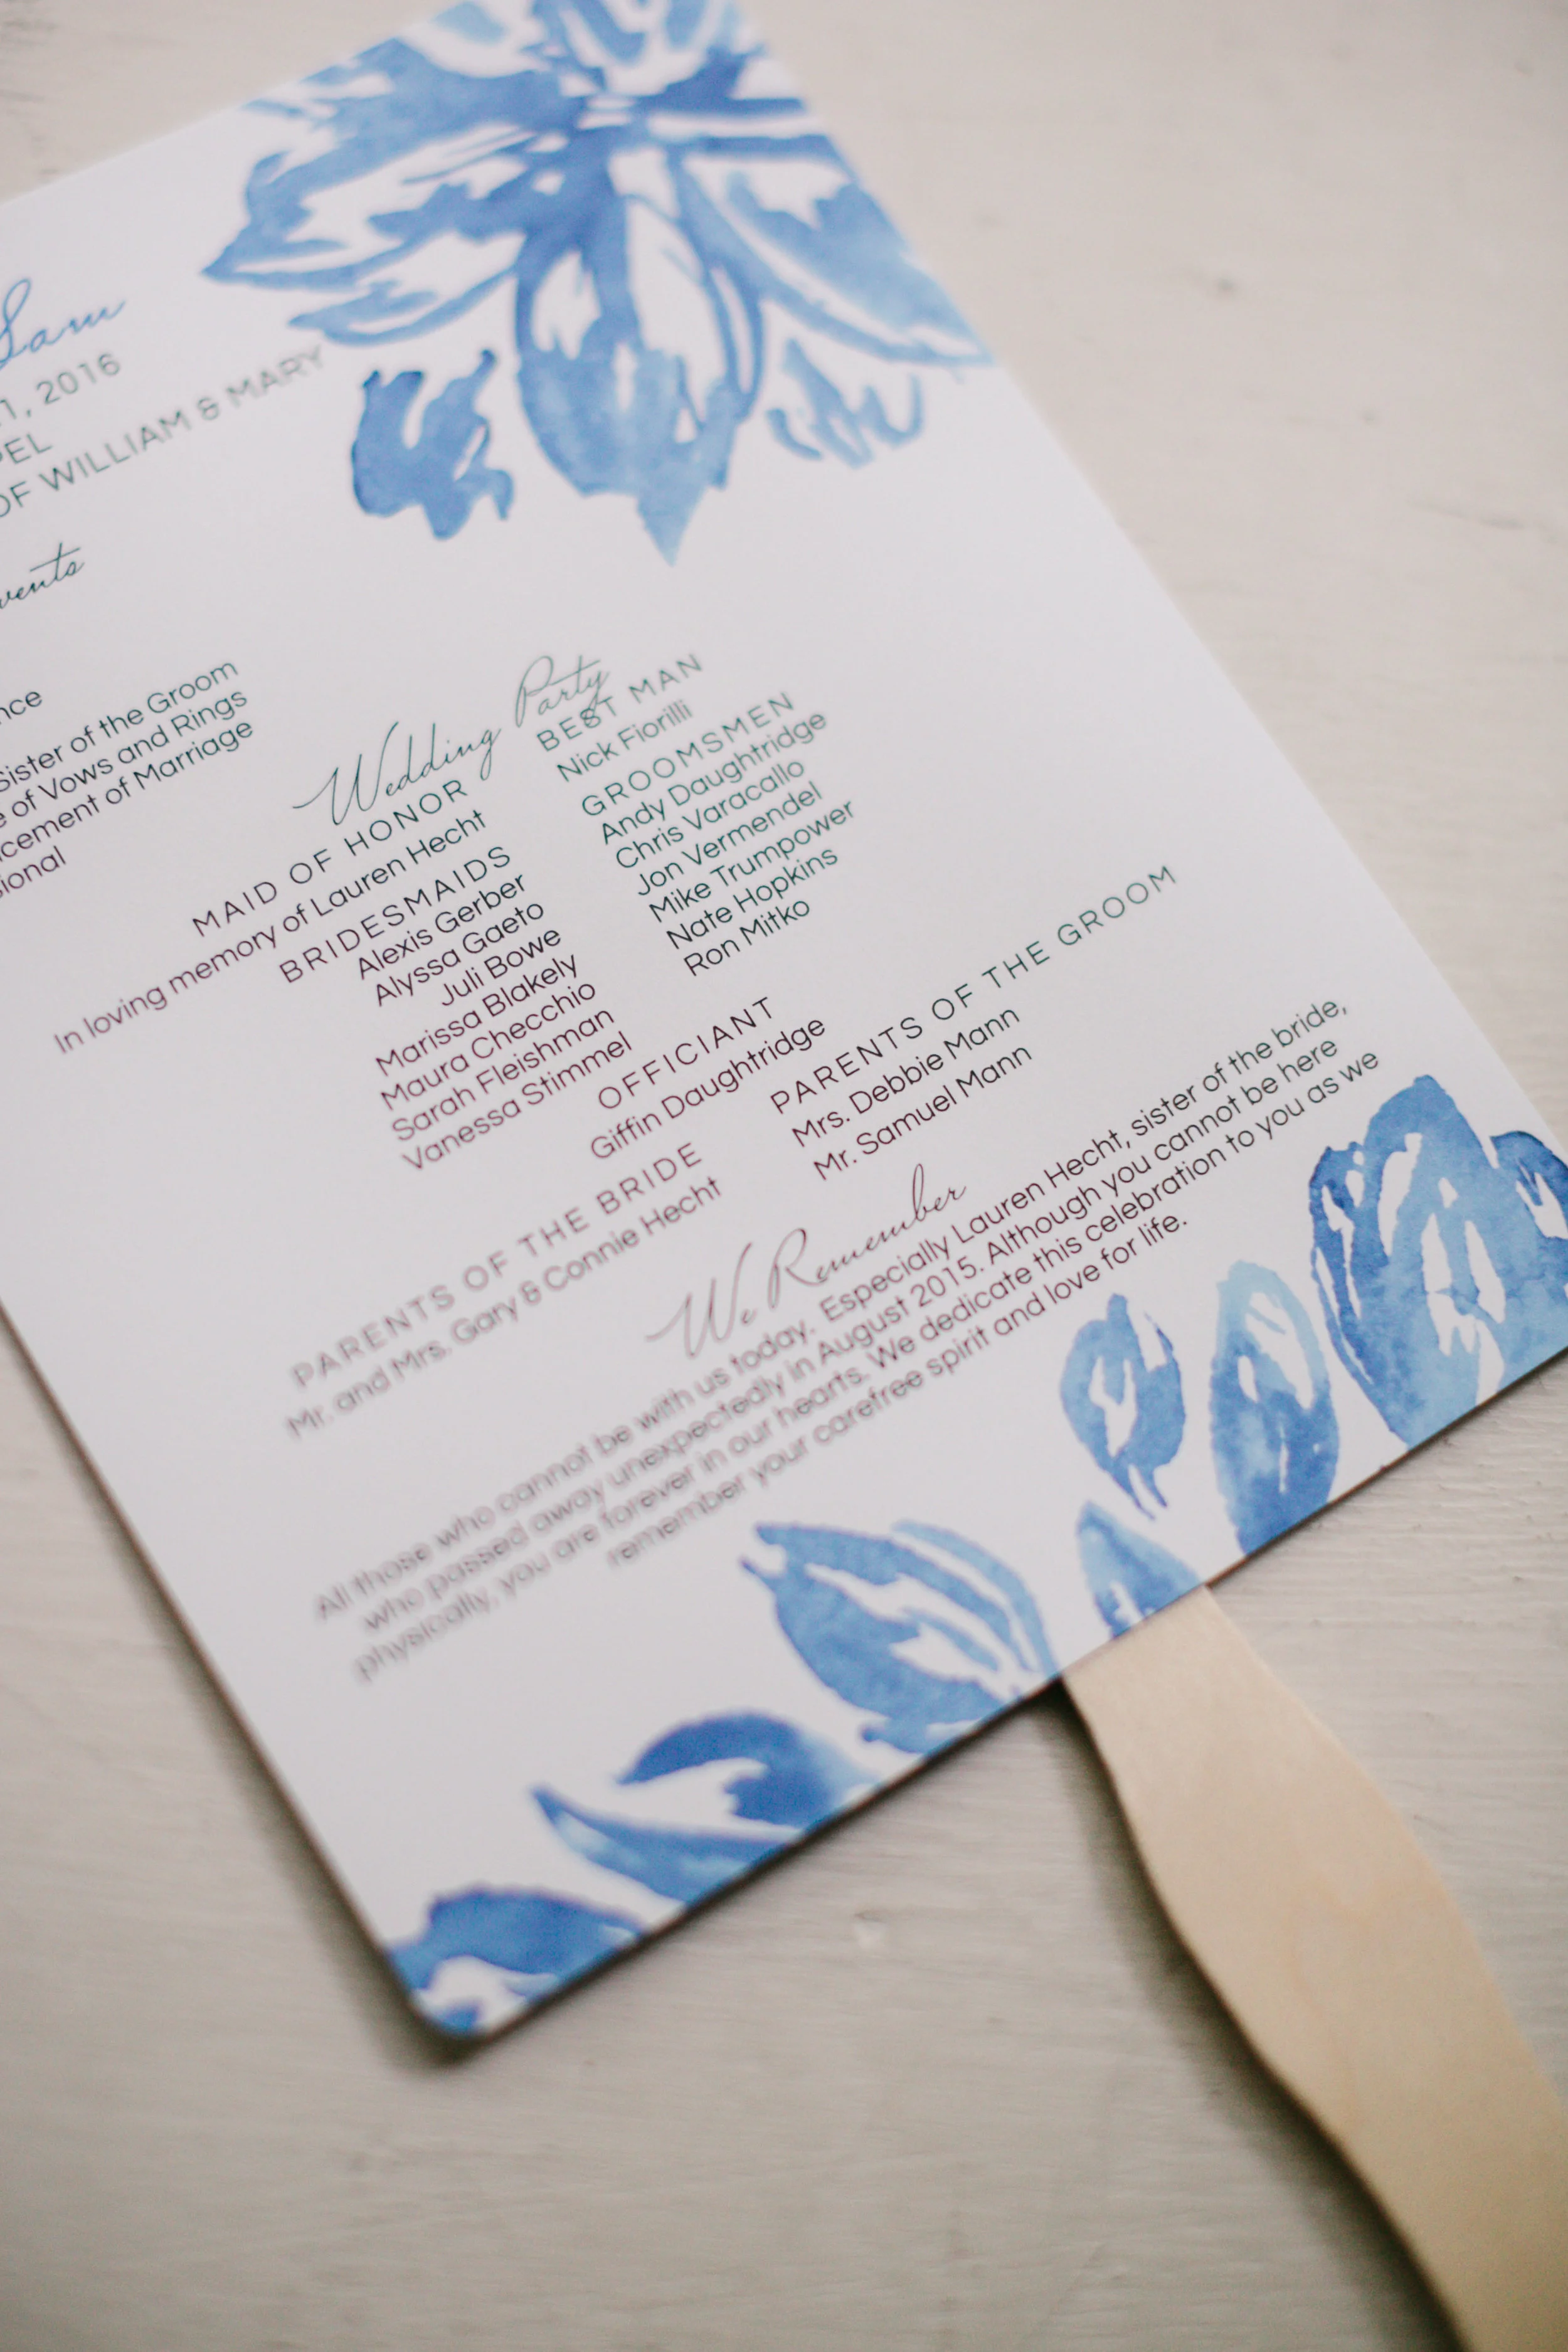 Sam
1, 2016
OF WILLIAM & MARY
Sister of the Groom
of Vows and Rings
of Marriage
Wedding Party
MAID OF HONOR
In loving memory of Lauren Hecht
BRIDESMAIDS
Alexis Gerber
Alyssa Gaeto
Juli Bowe
Marissa Blakely
Maura Checchio
Sarah Fleishman
Vanessa Stimmel
BEST MAN
Nick Fiorilli
GROOMSMEN
Andy Daughtridge
Chris Varacallo
Jon Vermendel
Mike Trumpower
Nate Hopkins
Ron Mitko
OFFICIANT
Giffin Daughtridge
PARENTS OF THE BRIDE
Mr. and Mrs. Gary & Connie Hecht
PARENTS OF THE GROOM
Mrs. Debbie Mann
Mr. Samuel Mann
We Remember
All those who cannot be with us today. Especially Lauren Hecht, sister of the bride,
who passed away unexpectedly in August 2015. Although you cannot be here
physically, you are forever in our hearts. We dedicate this celebration to you as we
remember your carefree spirit and love for life.